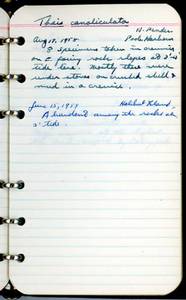 Thais canaliculata
N. Pender
Aug 1, 1958. Pooh Harbour
8 specimens taken in crevices
on E facing rock slopes at 2'
tide level. Mostly these were
under stones on crushed shell &
mud in a crevice.
June 13, 1959 Halibut Island.
Abundant among the rocks at
2' tide.